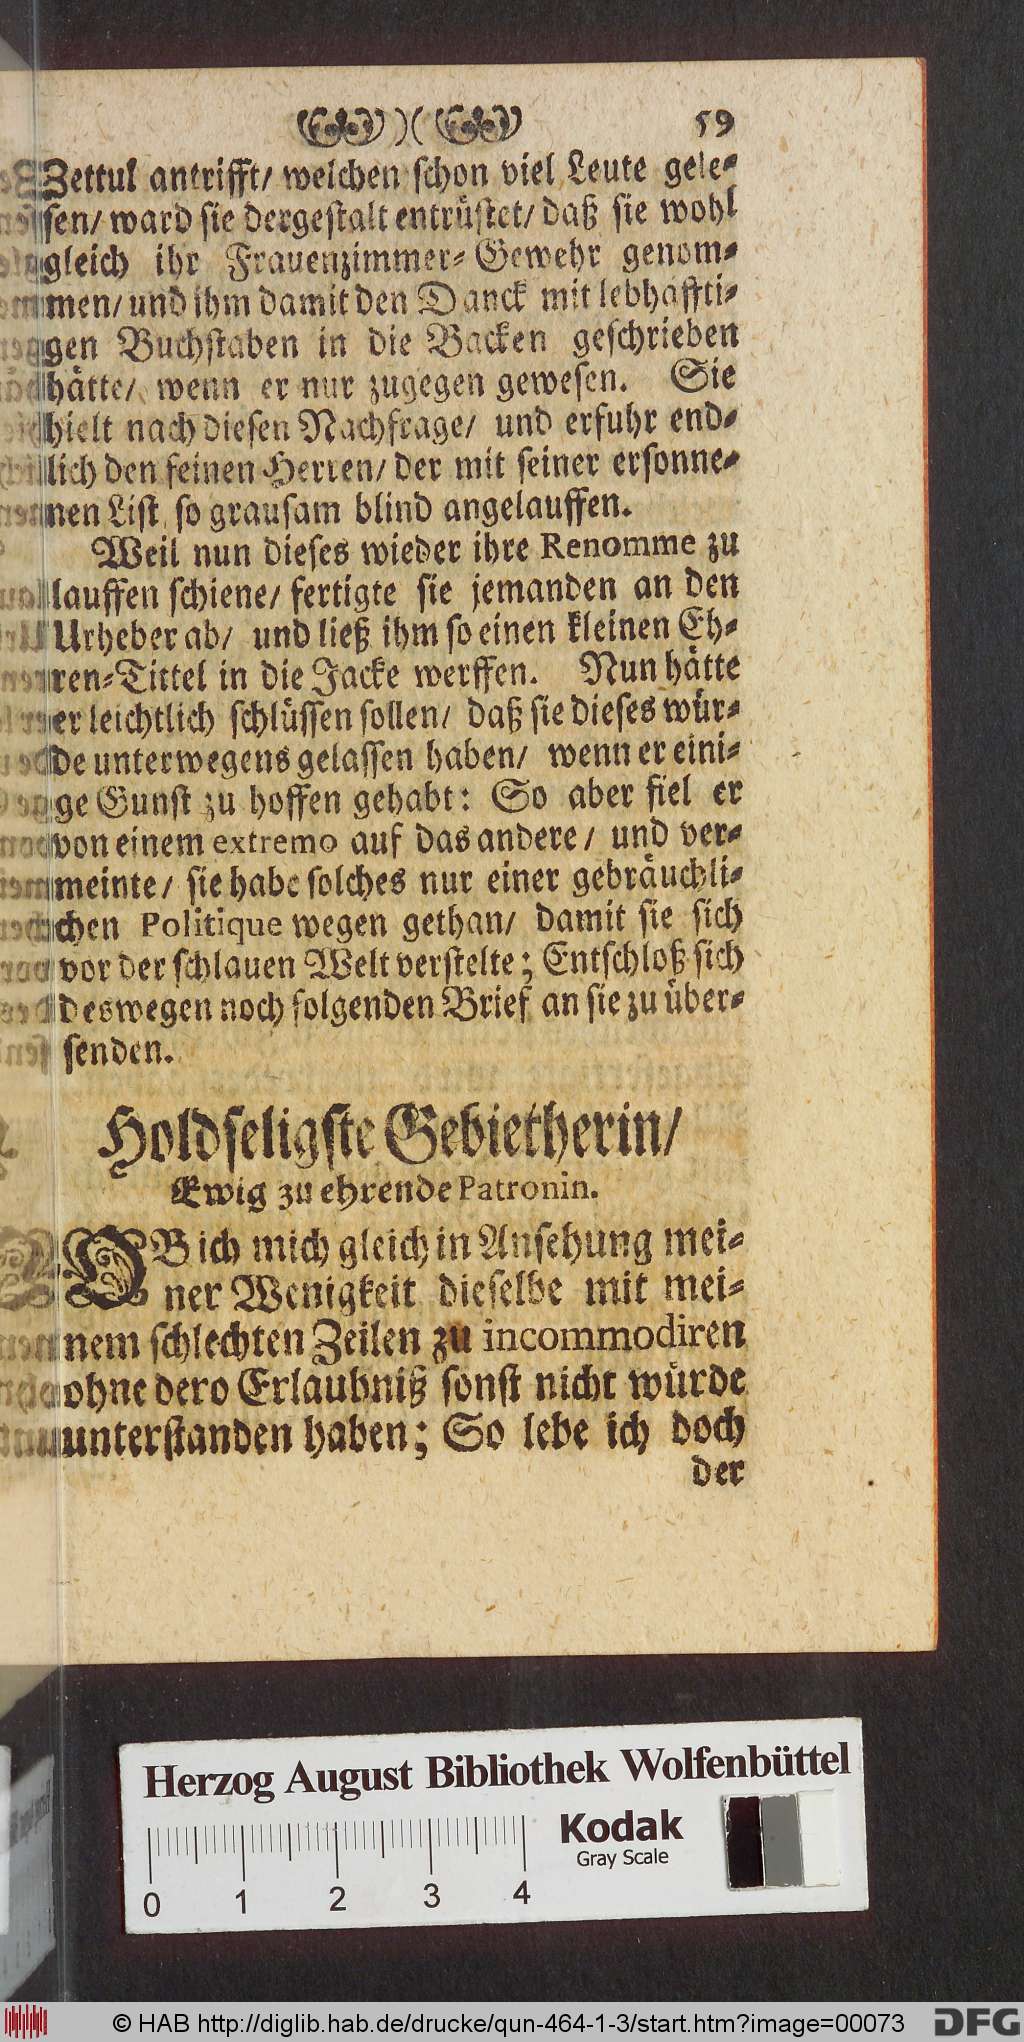 59
Zettul antrifft/ welchen schon viel Leute gele-
sen/ ward sie dergestalt entrüstet/ daß sie wohl
gleich ihr Frauenzimmer-Gewehr genom-
men/ und ihm damit den Danck mit lebhaffti-
gen Buchstaben in die Backen geschrieben
hätte/ wenn er nur zugegen gewesen. Sie
hielt nach diesen Nachfrage/ und erfuhr end-
lich den feinen Herren/ der mit seiner ersonne-
nen List so grausam blind angelauffen.
Weil nun dieses wieder ihre Renomme zu
lauffen schiene/ fertigte sie jemanden an den
Urheber ab/ und ließ ihm so einen kleinen Eh-
ren-Tittel in die Jacke werffen. Nun hätte
er leichtlich schlüssen sollen/ daß sie dieses wür-
de unterwegens gelassen haben/ wenn er eini-
ge Gunst zu hoffen gehabt: So aber fiel er
von einem extremo auf das andere/ und ver-
meinte/ sie habe solches nur einer gebräuchli-
chen Politique wegen gethan/ damit sie sich
vor der schlauen Welt verstelte; Entschloß sich
deswegen noch folgenden Brief an sie zu über-
senden.
Holdseligste Gebietherin/
Ewig zu ehrende Patronin.
OB ich mich gleich in Ansehung mei-
ner Wenigkeit dieselbe mit mei-
nem schlechten Zeilen zu incommodiren
ohne dero Erlaubniß sonst nicht würde
unterstanden haben; So lebe ich doch
der
Herzog August Bibliothek Wolfenbüttel
Kodak
Gray Scale
0 1 2 3 4
© HAB http://diglib.hab.de/drucke/qun-464-1-3/start.htm?image=00073
DFG